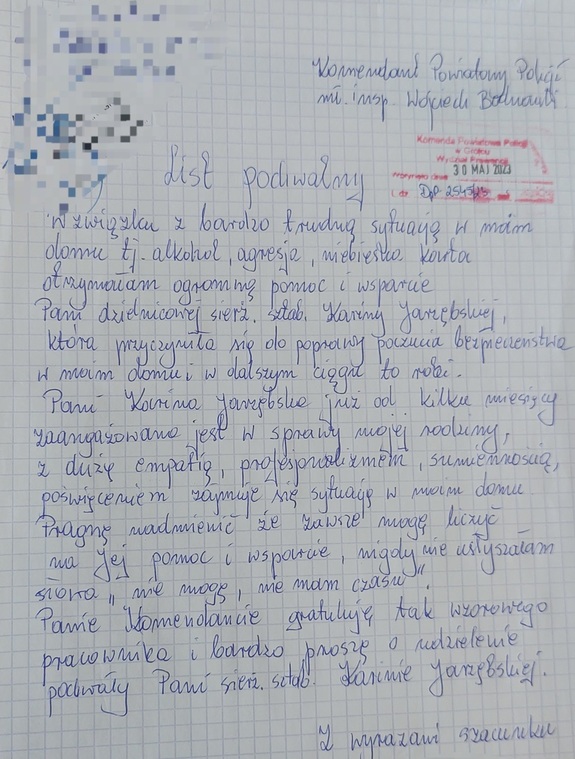 Komendant Powiatowy Policji
mł. insp. Wojciech
Komenda Powiatowa Policji
w Grójcu
Wydział Prewencji
30 MAJ 2023
L.dz.
List pochwalny
W związku z bardzo trudną sytuacją w moim
domu tj. alkohol, agresja, niebieska karta
otrzymałam ogromną pomoc i wsparcie
Pani dzielnicowej sierż. sztab. Kariny Jarzębskiej,
która przyczyniła się do poprawy poczucia bezpieczeństwa
w moim domu i w dalszym ciągu to robi.
Pani Karina Jarzębska już od kilku miesięcy
zaangażowana jest w sprawy mojej rodziny,
z dużą empatią, profesjonalizmem, sumiennością,
poświęceniem zajmuje się sytuacją w moim domu
Pragnę nadmienić że zawsze mogę liczyć
na Jej pomoc i wsparcie, nigdy nie usłyszałam
słowa „nie mogę, nie mam czasu".
Panie Komendancie gratuluję tak wzorowego
pracownika i bardzo proszę o udzielenie
pochwały Pani sierż. sztab. Karinie Jarzębskiej.
Z wyrazami szacunku